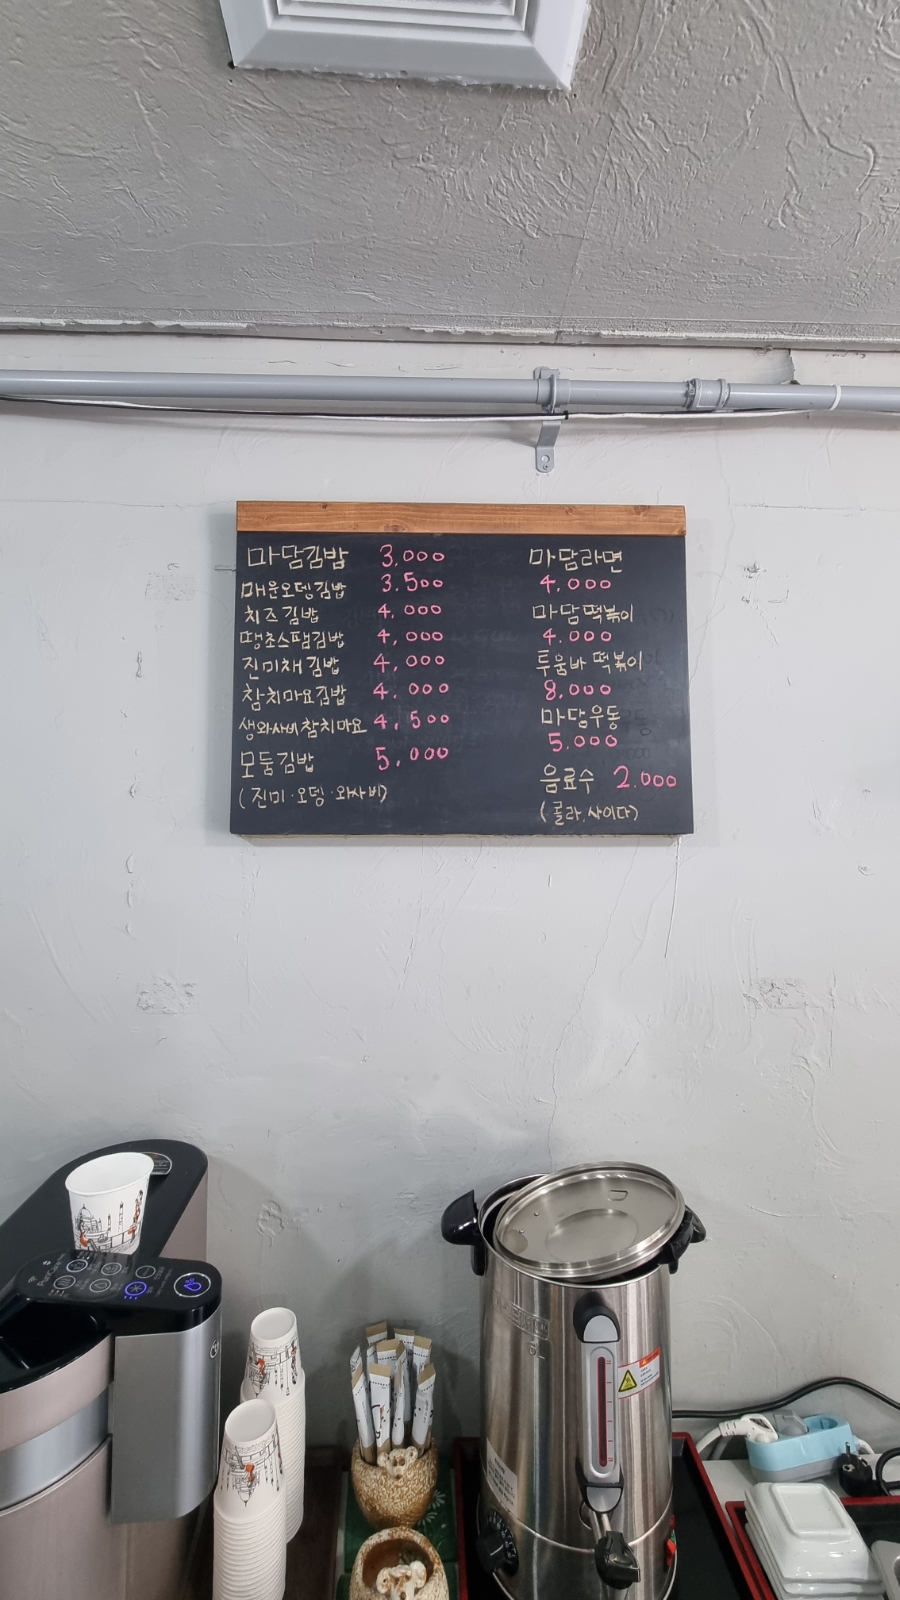 마담김밥 3.000
매운오뎅김밥 3.500
치즈김밥 4.000
땡초스팸김밥 4.000
진미채김밥 4.000
참치마요김밥 4.000
생와사비참치마요 4.500
모둠김밥 5.000
(진미·오뎅·와사비)
마담라면
4.000
마담떡볶이
4.000
투움바 떡볶이
8.000
마담우동
5.000
음료수 2.000
(콜라.사이다)